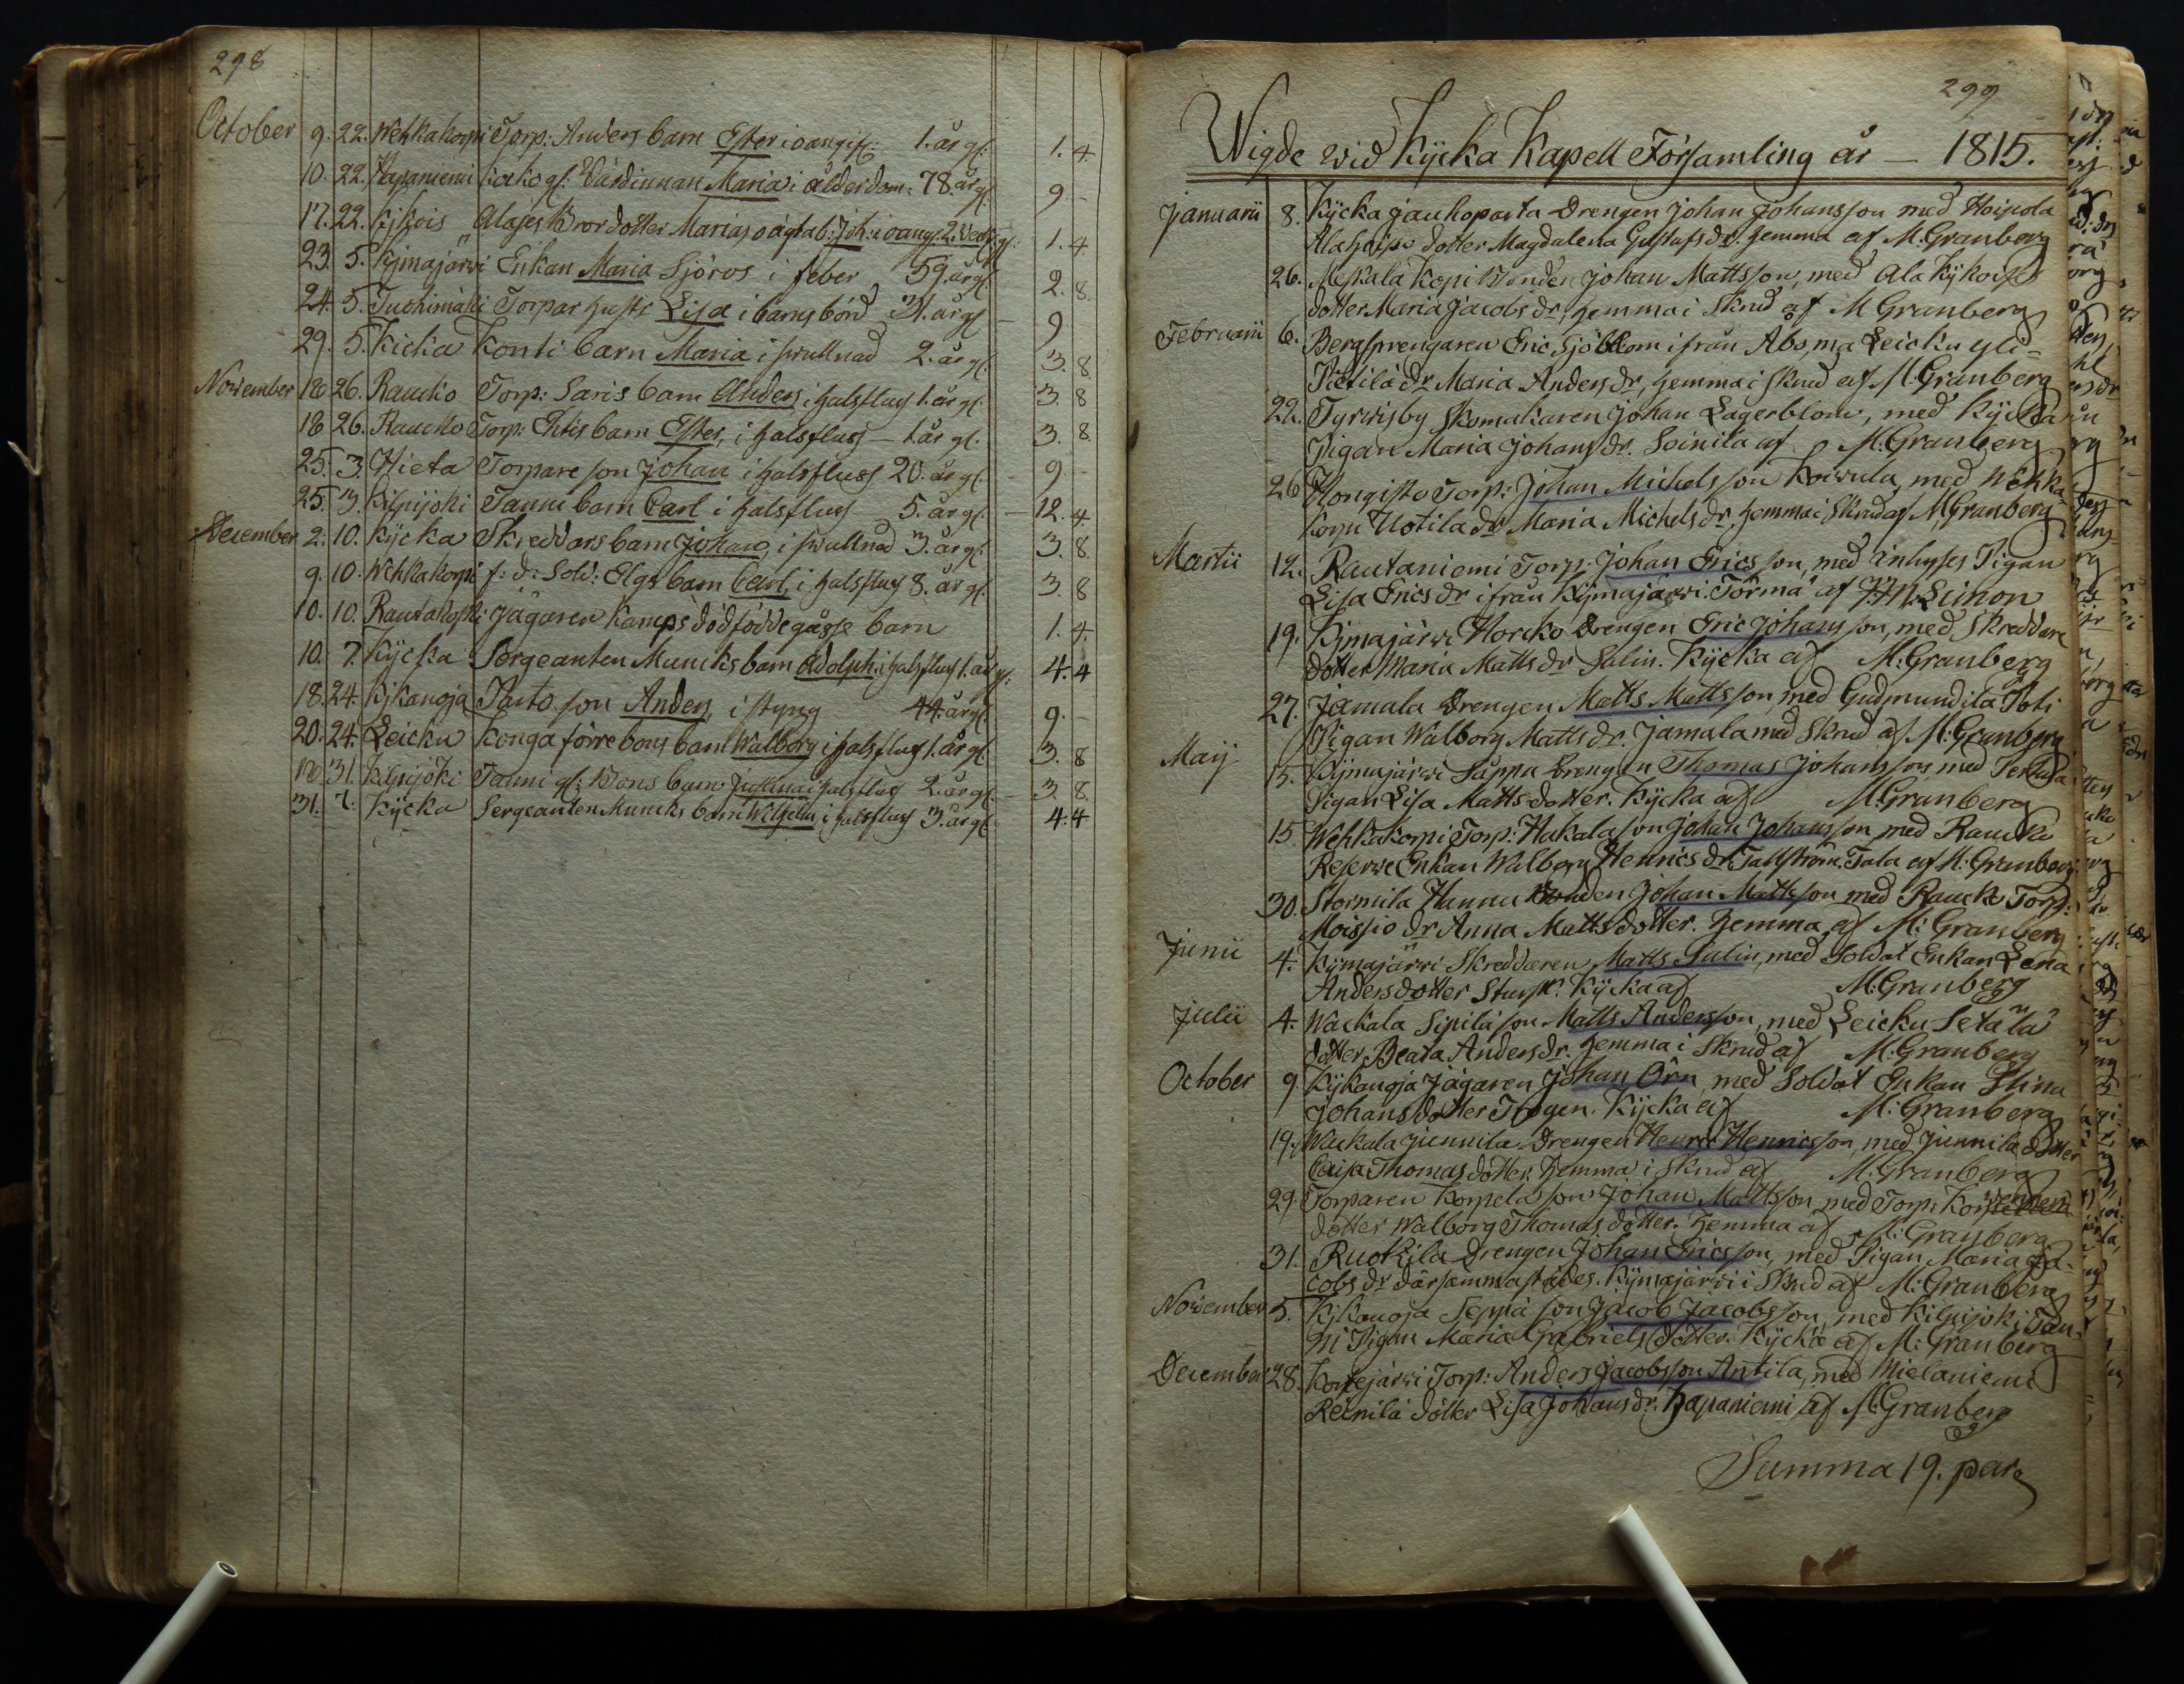 298
October 9. 22. Wehkakorpi Torp: Anders barn Ester i oangif: 1. år gl: 1. 4.
10. 22. Hapaniemi Kokko gl: Värdinnan Maria i ålderdom: 78 år gl: 9. -
17. 22. Kykois Alases Bror dotter Marias oägta b: Joh: i oang: 2. veck gl: 1. 4.
23. 5. Kymajärwi Enkan Maria Sjöros i feber 59. år gl: 2. 8.
24. 5. Tuohimäki Torpar hustr Lisa i barnsbörd 31. år gl - 9
29. 5. Kicka Konti barn Maria i swullnad 2. år gl: 3. 8
November 18 26. Raucko Torp: Saris barn Anders, i halsflus 1. år gl: 3. 8
18 26. Raucko Torp: Ehtis barn Ester, i halsfluss - 1. år gl. 3. 8.
25. 3. Hieta Torpare son Johan i halsfluss 20. år gl: - 9 -
25. 3. Kilpijoki Tanni barn Carl i halsfluss 5. år gl: - 12. 4.
December 2. 10. Kycka Skreddars barn Johan, i swullnad 3. år gl: 3. 8.
9. 10. Wehkakorpi f: d: Sold: Elgs barn Carl, i halsflus 8. år gl: 3. 8
10. 10. Rautakoski Jägaren Kamps dödfödde gåsse barn 1. 4.
10. 7. Kycka Sergeanten Muncks barn Adolph: i halsflus 1. år gl: 4. 4
18. 24. Kykangja son Anders, i styng 44. år gl: 9. -
20. 24. Leicku Konga förre bons barn Walborg i halsflus 1. år gl: 3. 8
31. Kilpijoki Tanni gl: Bons barn i halsflus 2. år gl: - 3. 8.
31. 7. Kycka Sergeanten Muncks barn Wilhelm, i halsfluss 3. år gl: 4. 4
299
Wigde wid Kycka Kapell Församling år - 1815.
Januarii 8. Kycka Jaukoparta Drengen Johan Johansson med Hoipola
Alaheiso dotter Magdalena Gustafs dr. hemma af M. Granberg
26. Meskala Kopi Bonden Johan Mattsson, med Ala Kykoises
dotter Maria Jacobs dr, hemma i Skrud af M Granberg
Februarii 6. Bergsprengaren Eric Sjöblom ifrån Åbo, m: Leicku yli=
Pietilä dr Maria Anders dr, hemma i Skrud af M. Granberg
22. Tyrwisby Skomakaren Johan Lagerblom, med Kycka
Pigan Maria Johans dr. Soinila af M. Granberg
26 Hongisto Torp: Johan Michelsson Koiwula, med Wehka
korpi Uotila dr Maria Michels dr, hemma i Skrud af M Granberg
Martii 12. Rautaniemi Torp: Johan Ericsson, med inhyses Pigan
Lisa Erics dr ifrån Kymajärwi. Törmä af J: M: Limon
19. Kymajärwi Horcko Drengen Eric Johansson, med Skreddare
dotter Maria Matts dr Salin. Kycka af M: Granberg
27. Jamala Drengen Matts Mattsson, med Gudmundila Poti
Pigan Walborg Matts dr. Jamala med Skrud af M: Granberg
Maij 15. Kymajärwi Säppä Drengen Thomas Johansson med
Pigan Lisa Matts dotter. Kycka af M. Granberg
15. Wehkakorpi Torp: Hakala son Johan Johansson med Raucko
Reserve Enkan Walborg Henrics dr Tallström. Tala af M: Granberg
30. Stormila Hannu Bonden Johan Mattsson med Raucko Torp:
Moisio dr Anna Matts dotter. hemma af M: Granberg
Junii 4. Kymajärwi Skreddaren Matts Salin, med Soldat Enkan Lena
Anders dotter Kycka af M: Granberg
Julii 4. Wackala Sipilä son Matts Andersson, med Leicku Setälä
dotter Beata Anders dr. hemma i Skrud af M: Granberg
October 9. Kykangja Jägaren Johan Örn med Soldat Enkan Stina
Johans dotter Trogen. Kycka af M: Granberg
19. Wackala Junnila Drengen Henric Henricsson, med Junnila dotter
Caisa Thomas dotter. hemma i Skrud af M. Granberg
29. Torparen Korpela son Johan Mattsson, med Torp:
dotter Walborg Thomas dotter. hemma af M: Granberg
31. Ruokila Drengen Johan Ericsson, med Pigan Maria Ja=
cobs dr därsammastädes. Kymajärwi i Skrud af M: Granberg
November 5. Kykangja Seppä son Jacob Jacobsson, med Kilpijoki Tan=
ni Pigan Maria Gabriels dotter. Kycka af M: Granberg
December 28. Korpejärwi Torp: Anders Jacobsson Antila, med Mielaniemi
Reinilä dotter Lisa Johans dr. Hapaniemi af M: Granberg
Summa 19. par